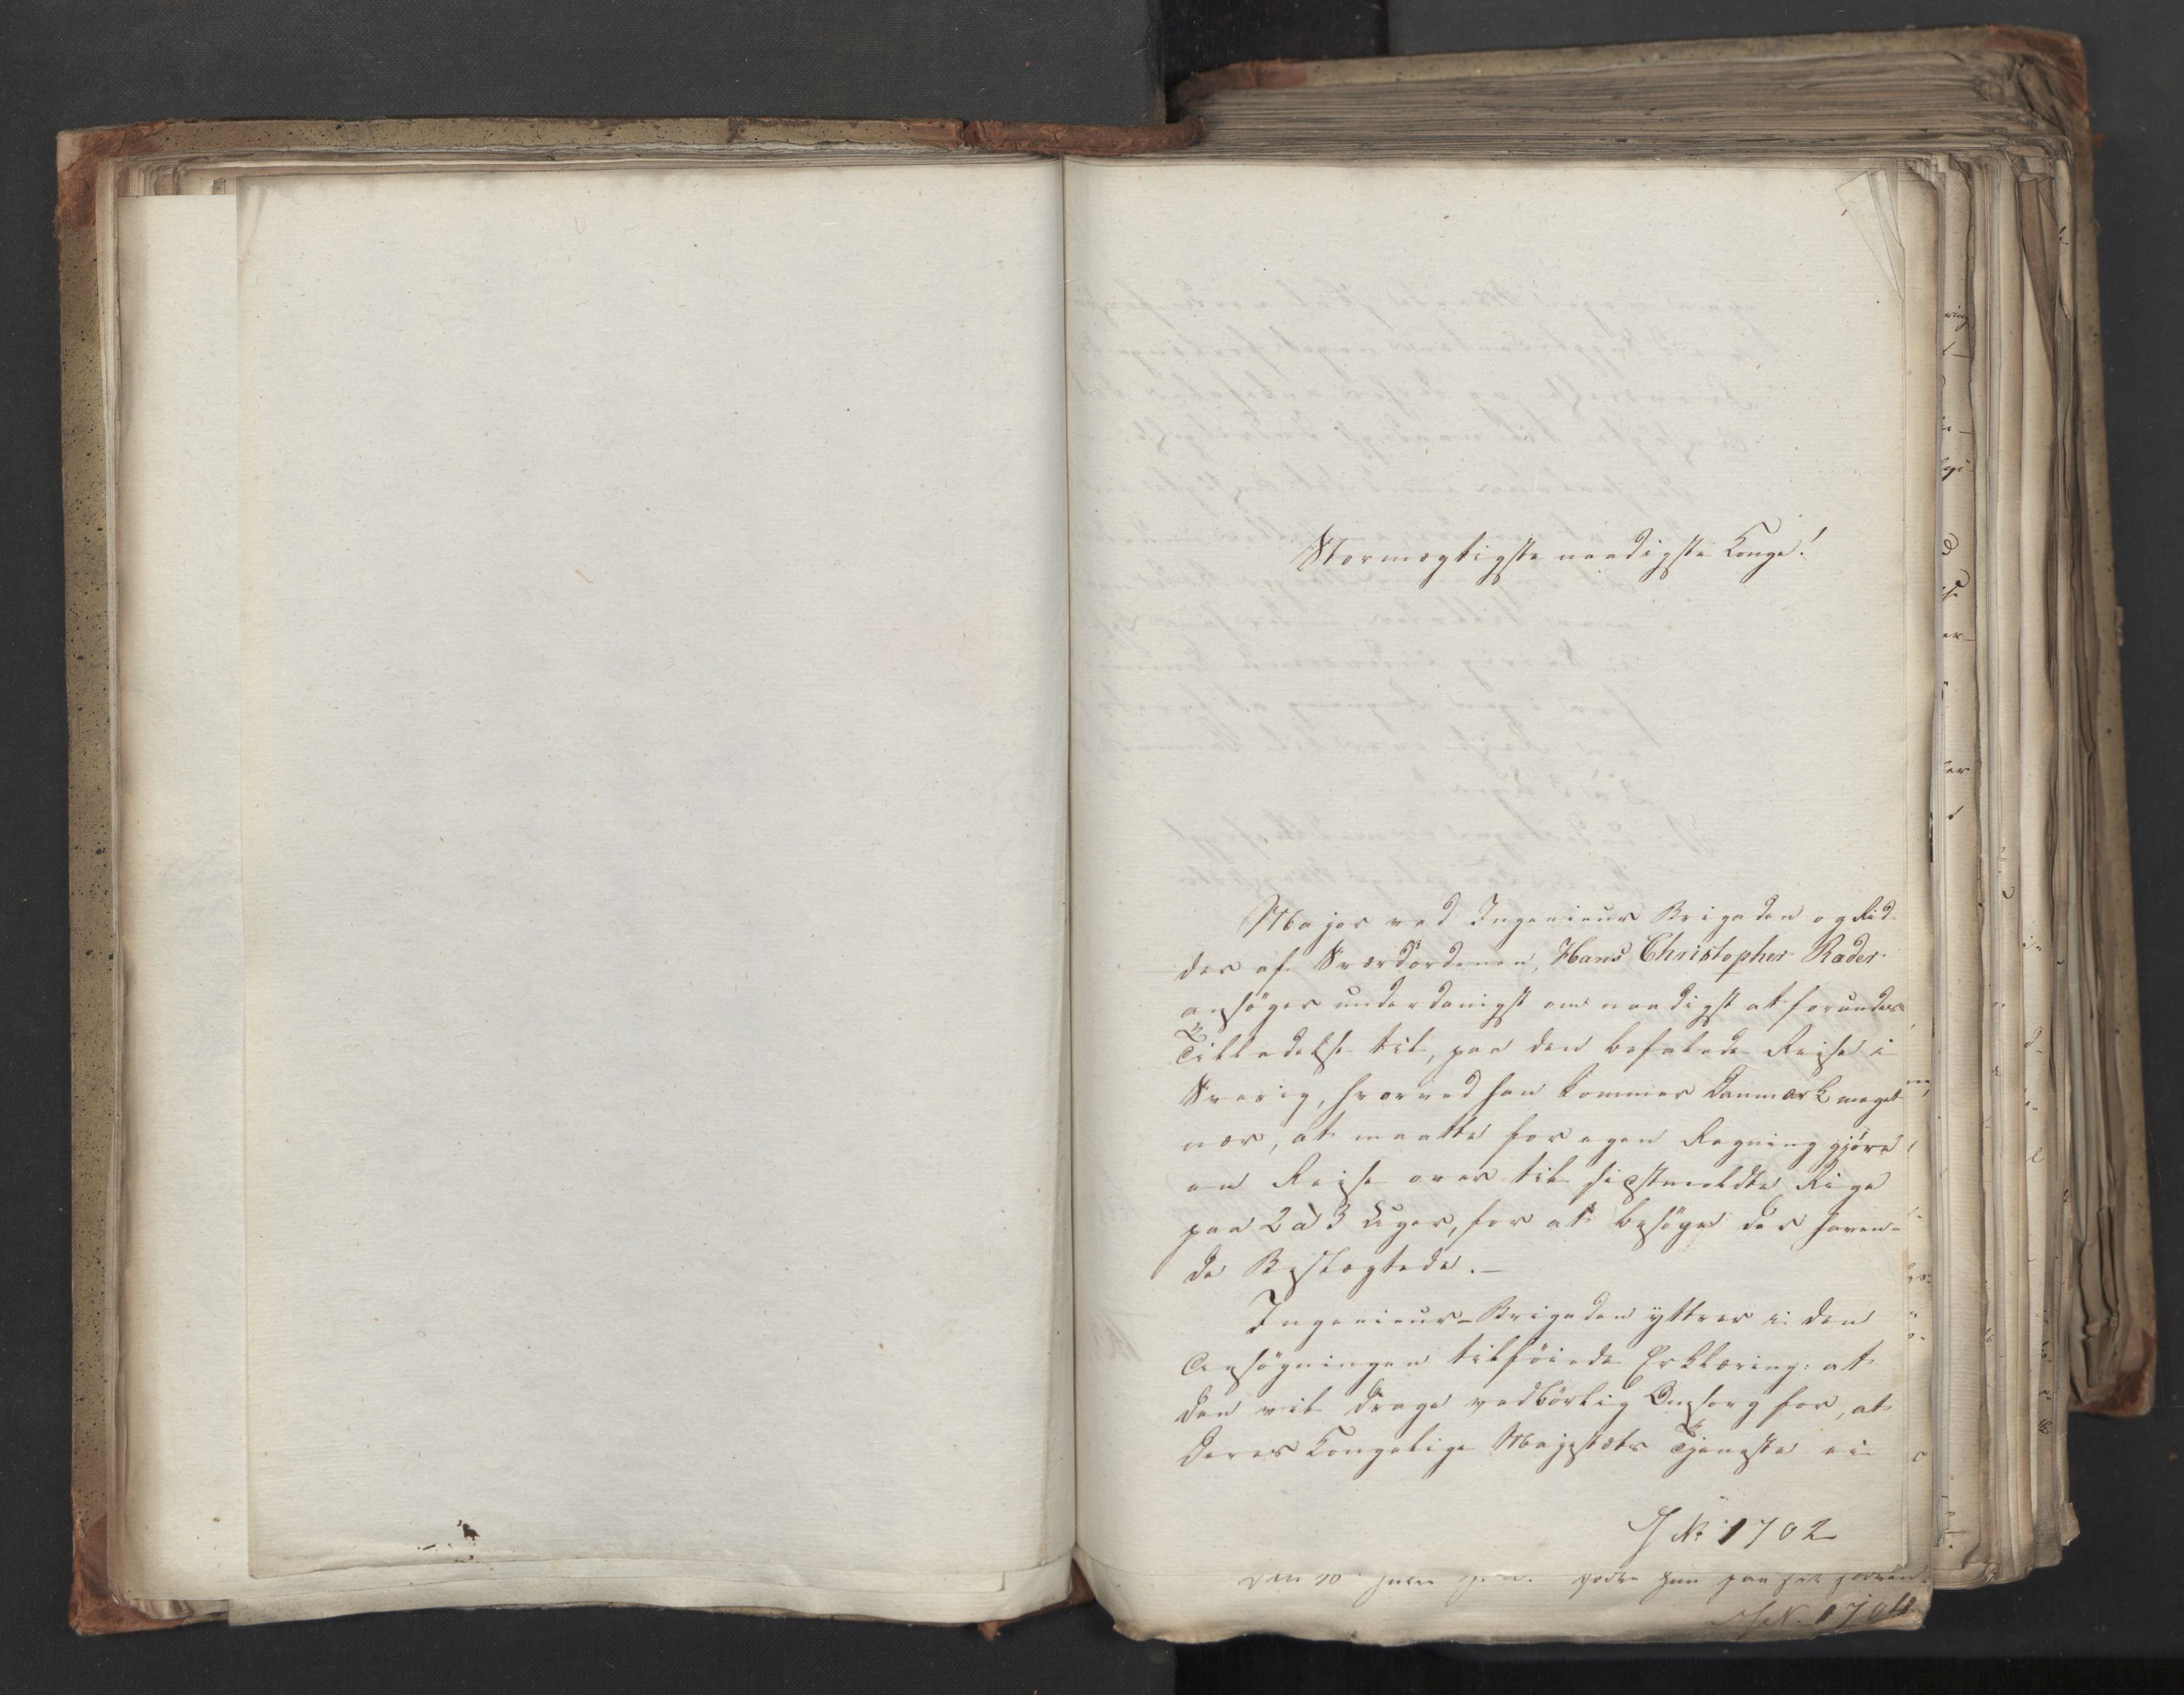 Stormægtigste naadigste Konge!
Major ved Ingenieur Brigaden og Rid-
der af Sværdordenen, Hans Christopher Ræder
ansøger underdanigst om naadigst at forundes
Tilladelse til, paa den befalede Reise i
Sverig, hvorved han kommer Danmark meget
nær, at maatte for egen Regning gjøre
en Reise over til sidstmeldte Rige
paa 2 à 3 Uger, for at besøge der haven-
de Beslægtede.—
Ingenieur-Brigaden yttrer i den
Ansøgningen tilføiede Erklæring: at
den vil drage vedbørlig Omsorg for, at
Deres Kongelige Majestæts Tjeneste ei
J No 1702